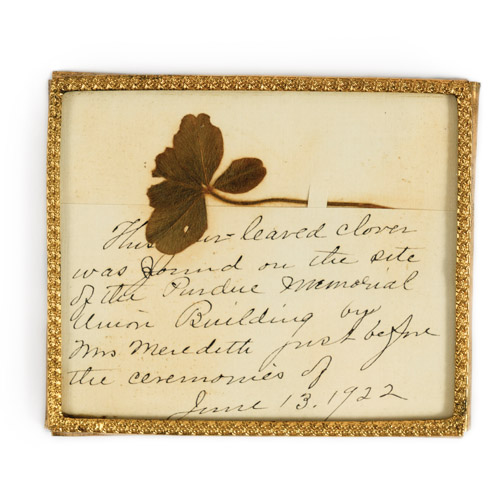 This four-leaved clover
was found on the site
of the Purdue Memorial
Union Building by
Mrs Meredith just before
the ceremonies of
June 13, 1922